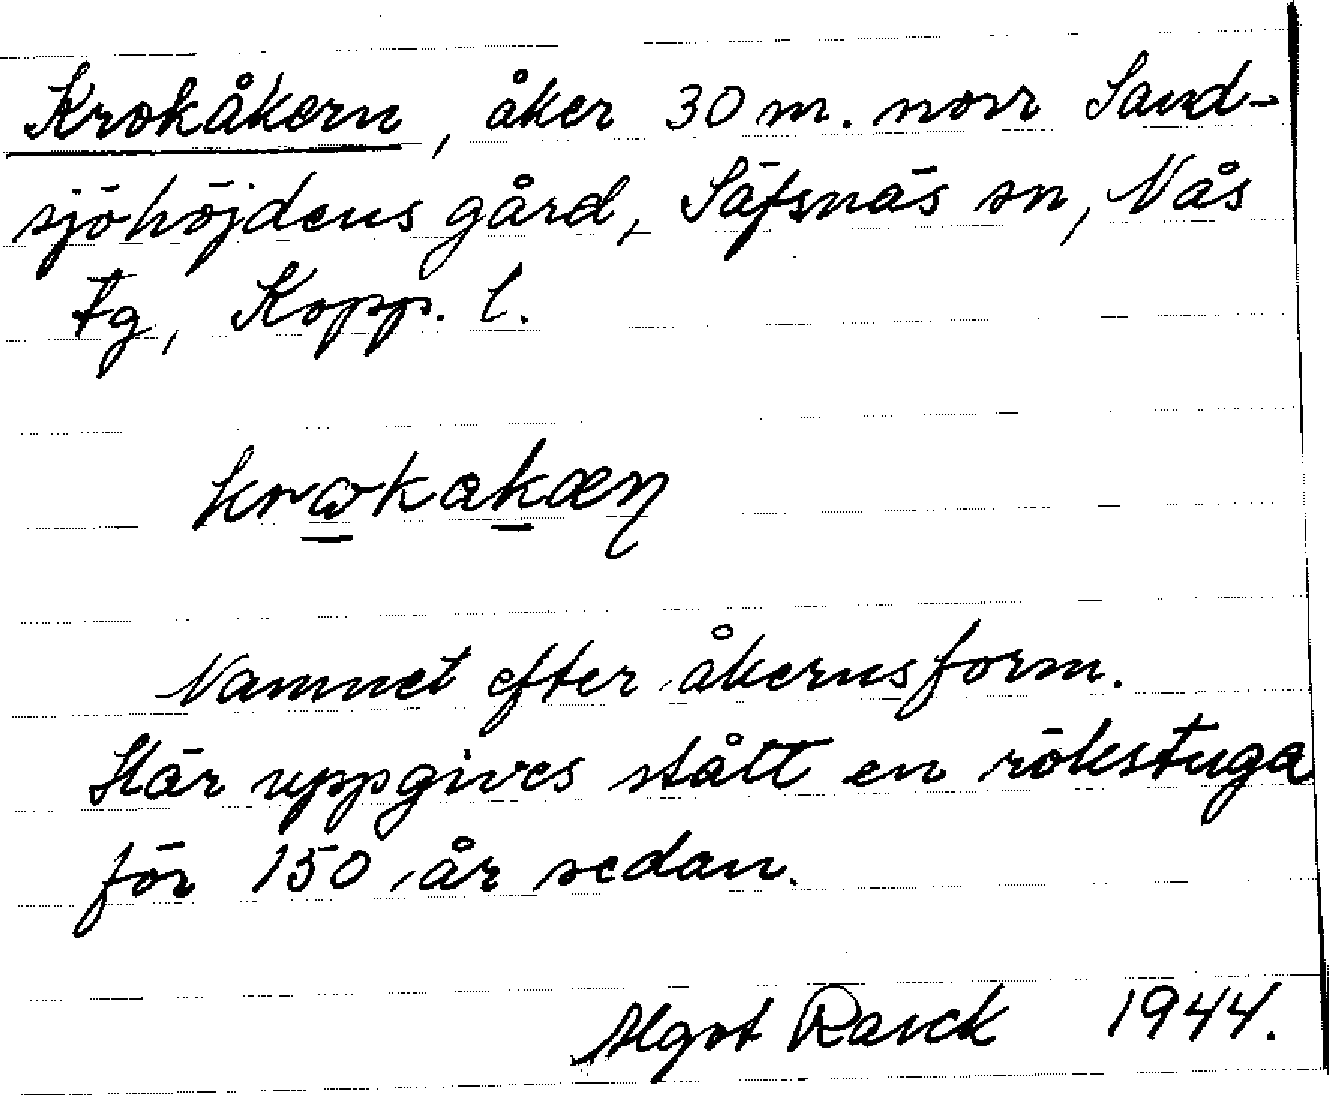 Krokåkern, åker 30 m. norr Sand-
sjöhöjdens gård, Säfsnäs sn, Nås
tg, Kopp. l.
Namnet efter åkerns form.
Här uppgives stått en rökstuga
för 150 år sedan.
Algot Rarck 1944.